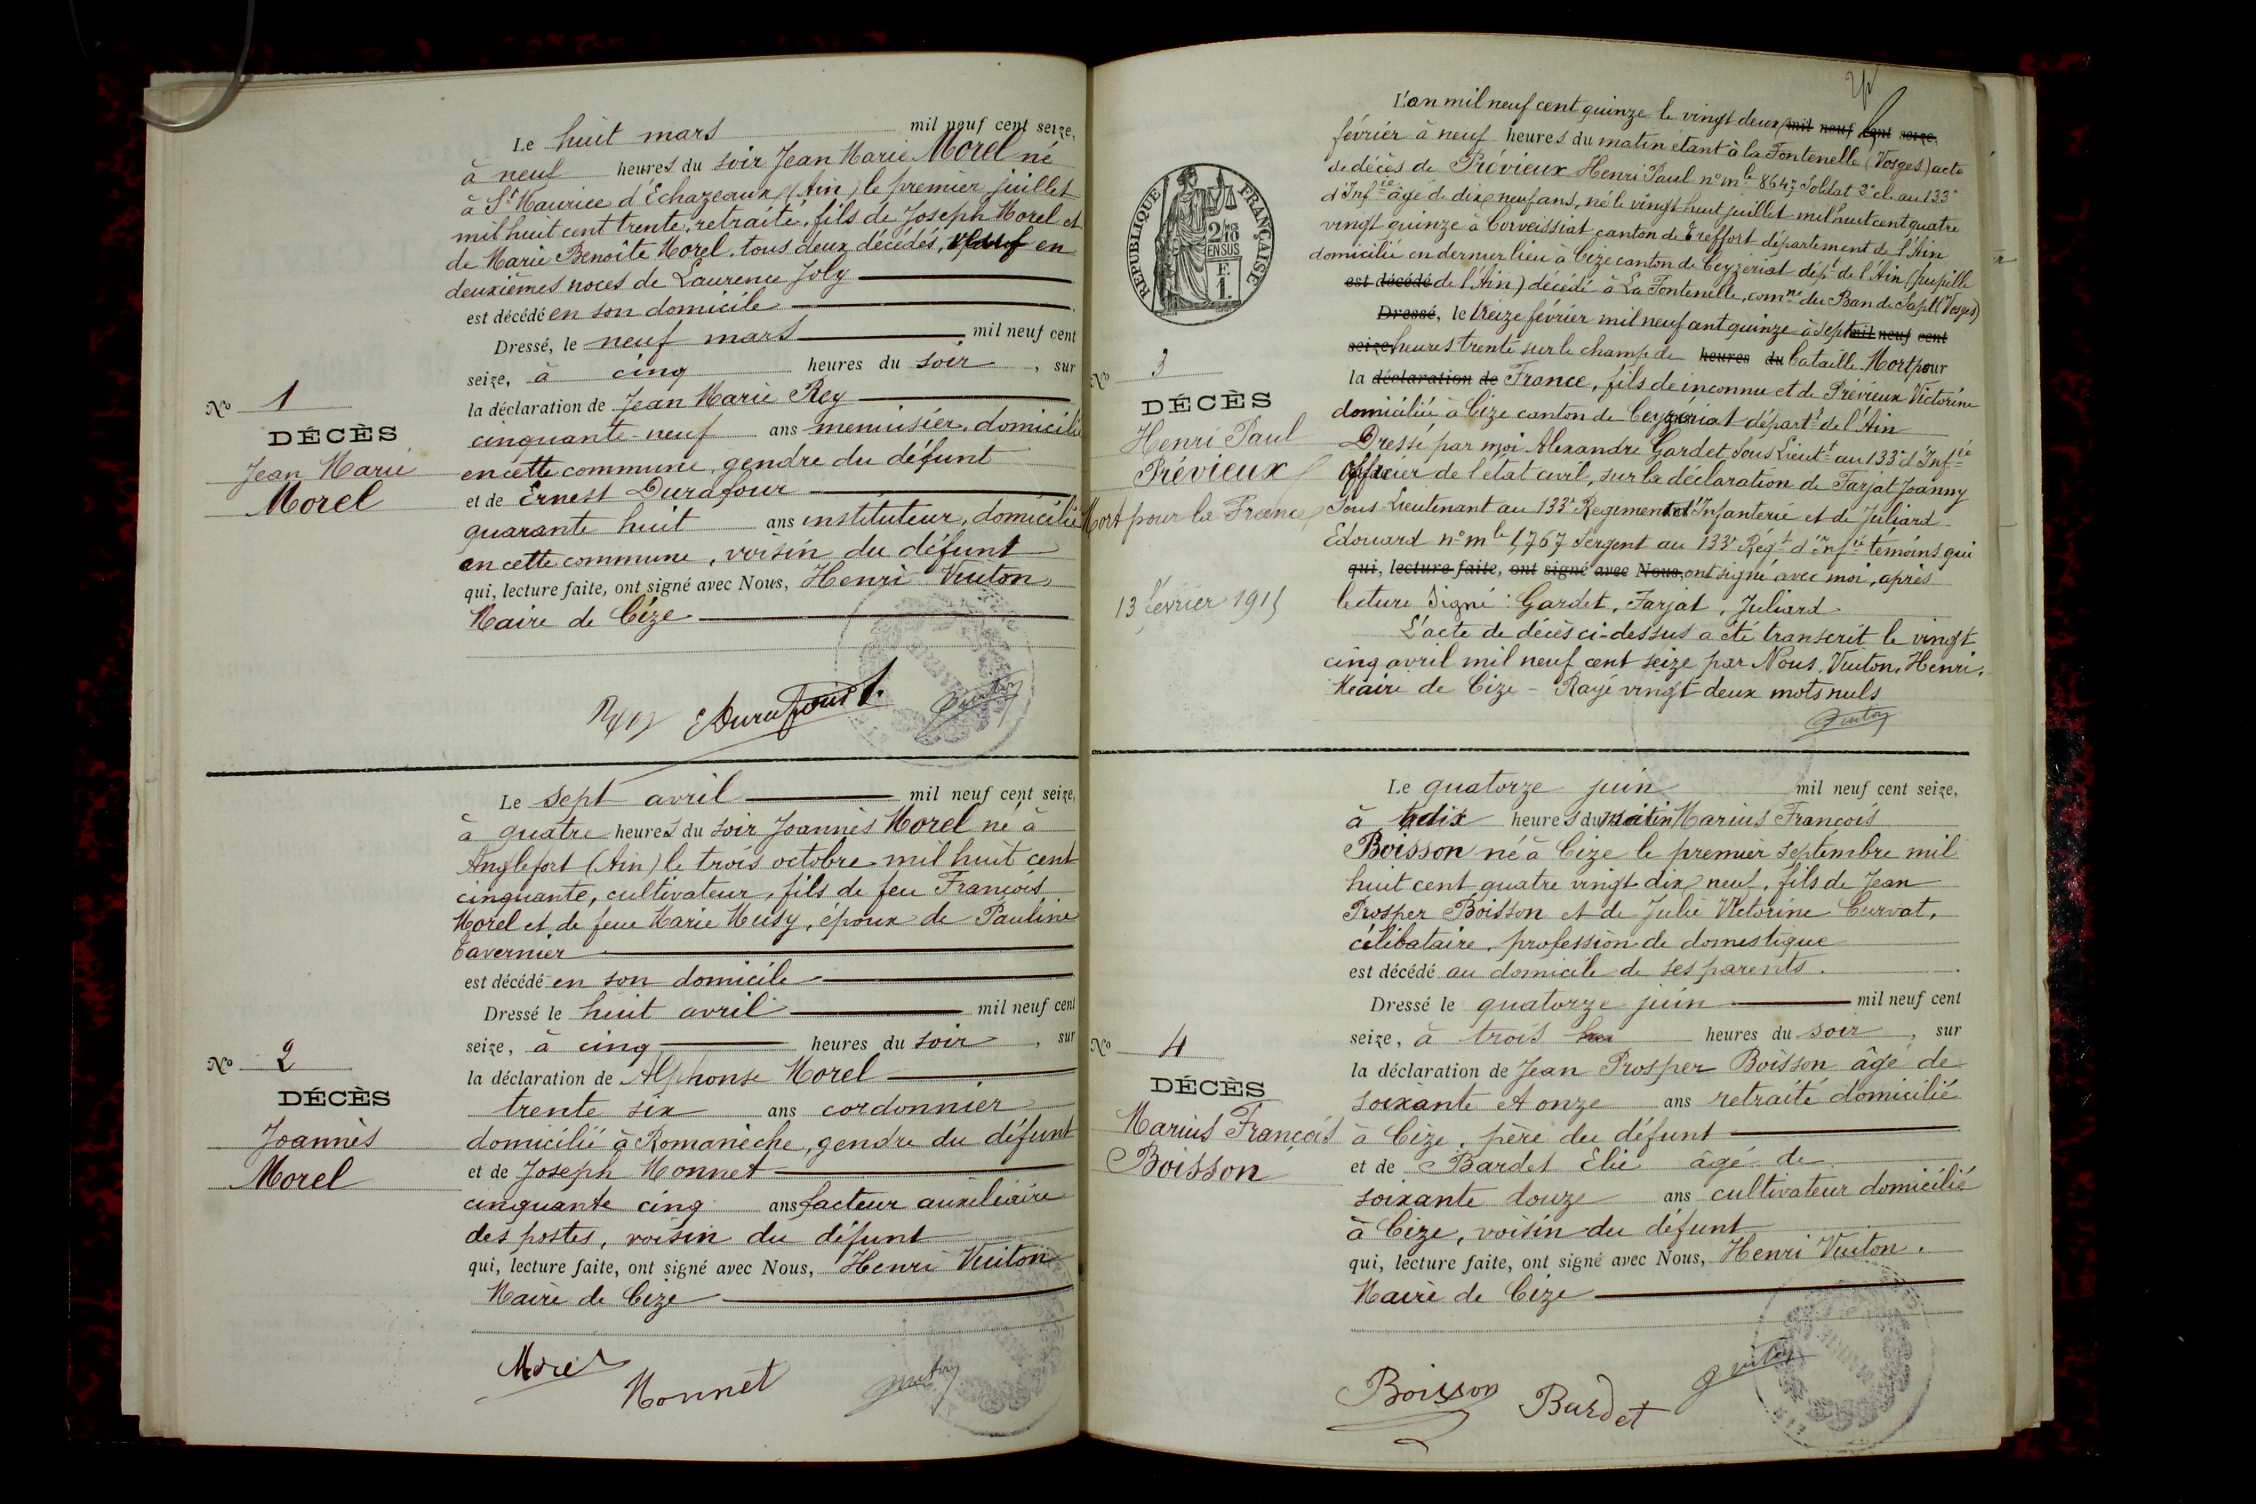 Le huit mars mil neuf cent seize,
à neuf heures du soir Jean Marie Morel né
à St Maurice d'Echazeaux (Ain) le premier juillet
mil huit cent trente, retraité, fils de Joseph Morel et
de Marie Benoîte Morel, tous deux décédés, veuf en
deuxièmes noces de Laurence Joly
est décédé en son domicile
Dressé, le neuf mars mil neuf cent
seize, à cinq heures du soir, sur
la déclaration de Jean Marie Rey
cinquante-neuf ans menuisier, domicilié
en cette commune, gendre du défunt
et de Ernest Durafour
quarante huit ans instituteur, domicilié
en cette commune, voisin du défunt
qui, lecture faite, ont signé avec Nous, Henri Vuiton
Maire de Cize
No 1
DÉCÈS
Jean Marie
Morel
Rey E Durafour Vuiton
Le sept avril mil neuf cent seize,
à quatre heures du soir Joannès Morel né à
Anglefort (Ain) le trois octobre mil huit cent
cinquante, cultivateur, fils de feu François
Morel et de feue Marie Musy, époux de Pauline
Tavernier
est décédé en son domicile
Dressé le huit avril mil neuf cent
seize, à cinq heures du soir, sur
la déclaration de Alphonse Morel
trente six ans cordonnier
domicilié à Romanèche, gendre du défunt
et de Joseph Monnet
cinquante cinq ans facteur auxiliaire
des postes, voisin du défunt
qui, lecture faite, ont signé avec Nous, Henri Vuiton
Maire de Cize
No 2
DÉCÈS
Joannès
Morel
Morel Monnet Vuiton
L'an mil neuf cent quinze le vingt deux mil neuf cent seize,
février à neuf heures du matin étant à la Fontenelle (Vosges) acte
de décès de Prévieux Henri Paul no mle 8647 Soldat 2e cl. au 133e
d'Infie âgé de dix neuf ans, né le vingt huit juillet mil huit cent quatre
vingt quinze à Corveissiat canton de Treffort département de l'Ain
domicilié en dernier lieu à Cize canton de Ceyzériat dépt de l'Ain (pupille
est décédé de l'Ain) décédé à La Fontenelle, comne du Ban de Sapt (Vosges)
Dressé, le treize février mil neuf cent quinze à sept mil neuf cent
seize heures trente sur le champ de heures du bataille Mort pour
la déclaration de France, fils de inconnu et de Prévieux Victorine
domiciliée à Cize canton de Ceyzériat départt de l'Ain
Dressé par moi Alexandre Gardet Sous Lieutt au 133e d'Infie
Officier de l'état civil, sur la déclaration de Farjat Joanny
Sous-Lieutenant au 133e Régiment d'Infanterie et de Juliard
Edouard no mle 1767 Sergent au 133e Régt d'Infie témoins qui
qui, lecture faite, ont signé avec Nous, ont signé avec moi, après
lecture Signé : Gardet, Farjat, Juliard
L'acte de décès ci-dessus a été transcrit le vingt
cinq avril mil neuf cent seize par Nous, Vuiton, Henri,
Maire de Cize - Rayé vingt deux mots nuls
Vuiton
RÉPUBLIQUE FRANÇAISE
2/10 EN SUS
No 3
DÉCÈS
Henri Paul
Prévieux
Mort pour la France
13 février 1915
Le quatorze juin mil neuf cent seize,
à dix heures du matin Marius François
Boisson né à Cize le premier septembre mil
huit cent quatre vingt dix neuf, fils de Jean
Prosper Boisson et de Julie Victorine Curvat,
célibataire, profession de domestique
est décédé au domicile de ses parents.
Dressé le quatorze juin mil neuf cent
seize, à trois heures du soir, sur
la déclaration de Jean Prosper Boisson âgé de
soixante et onze ans retraité domicilié
à Cize, père du défunt
et de Bardet Elie âgé de
soixante douze ans cultivateur domicilié
à Cize, voisin du défunt
qui, lecture faite, ont signé avec Nous, Henri Vuiton.
Maire de Cize
No 4
DÉCÈS
Marius François
Boisson
Boisson Bardet Vuiton